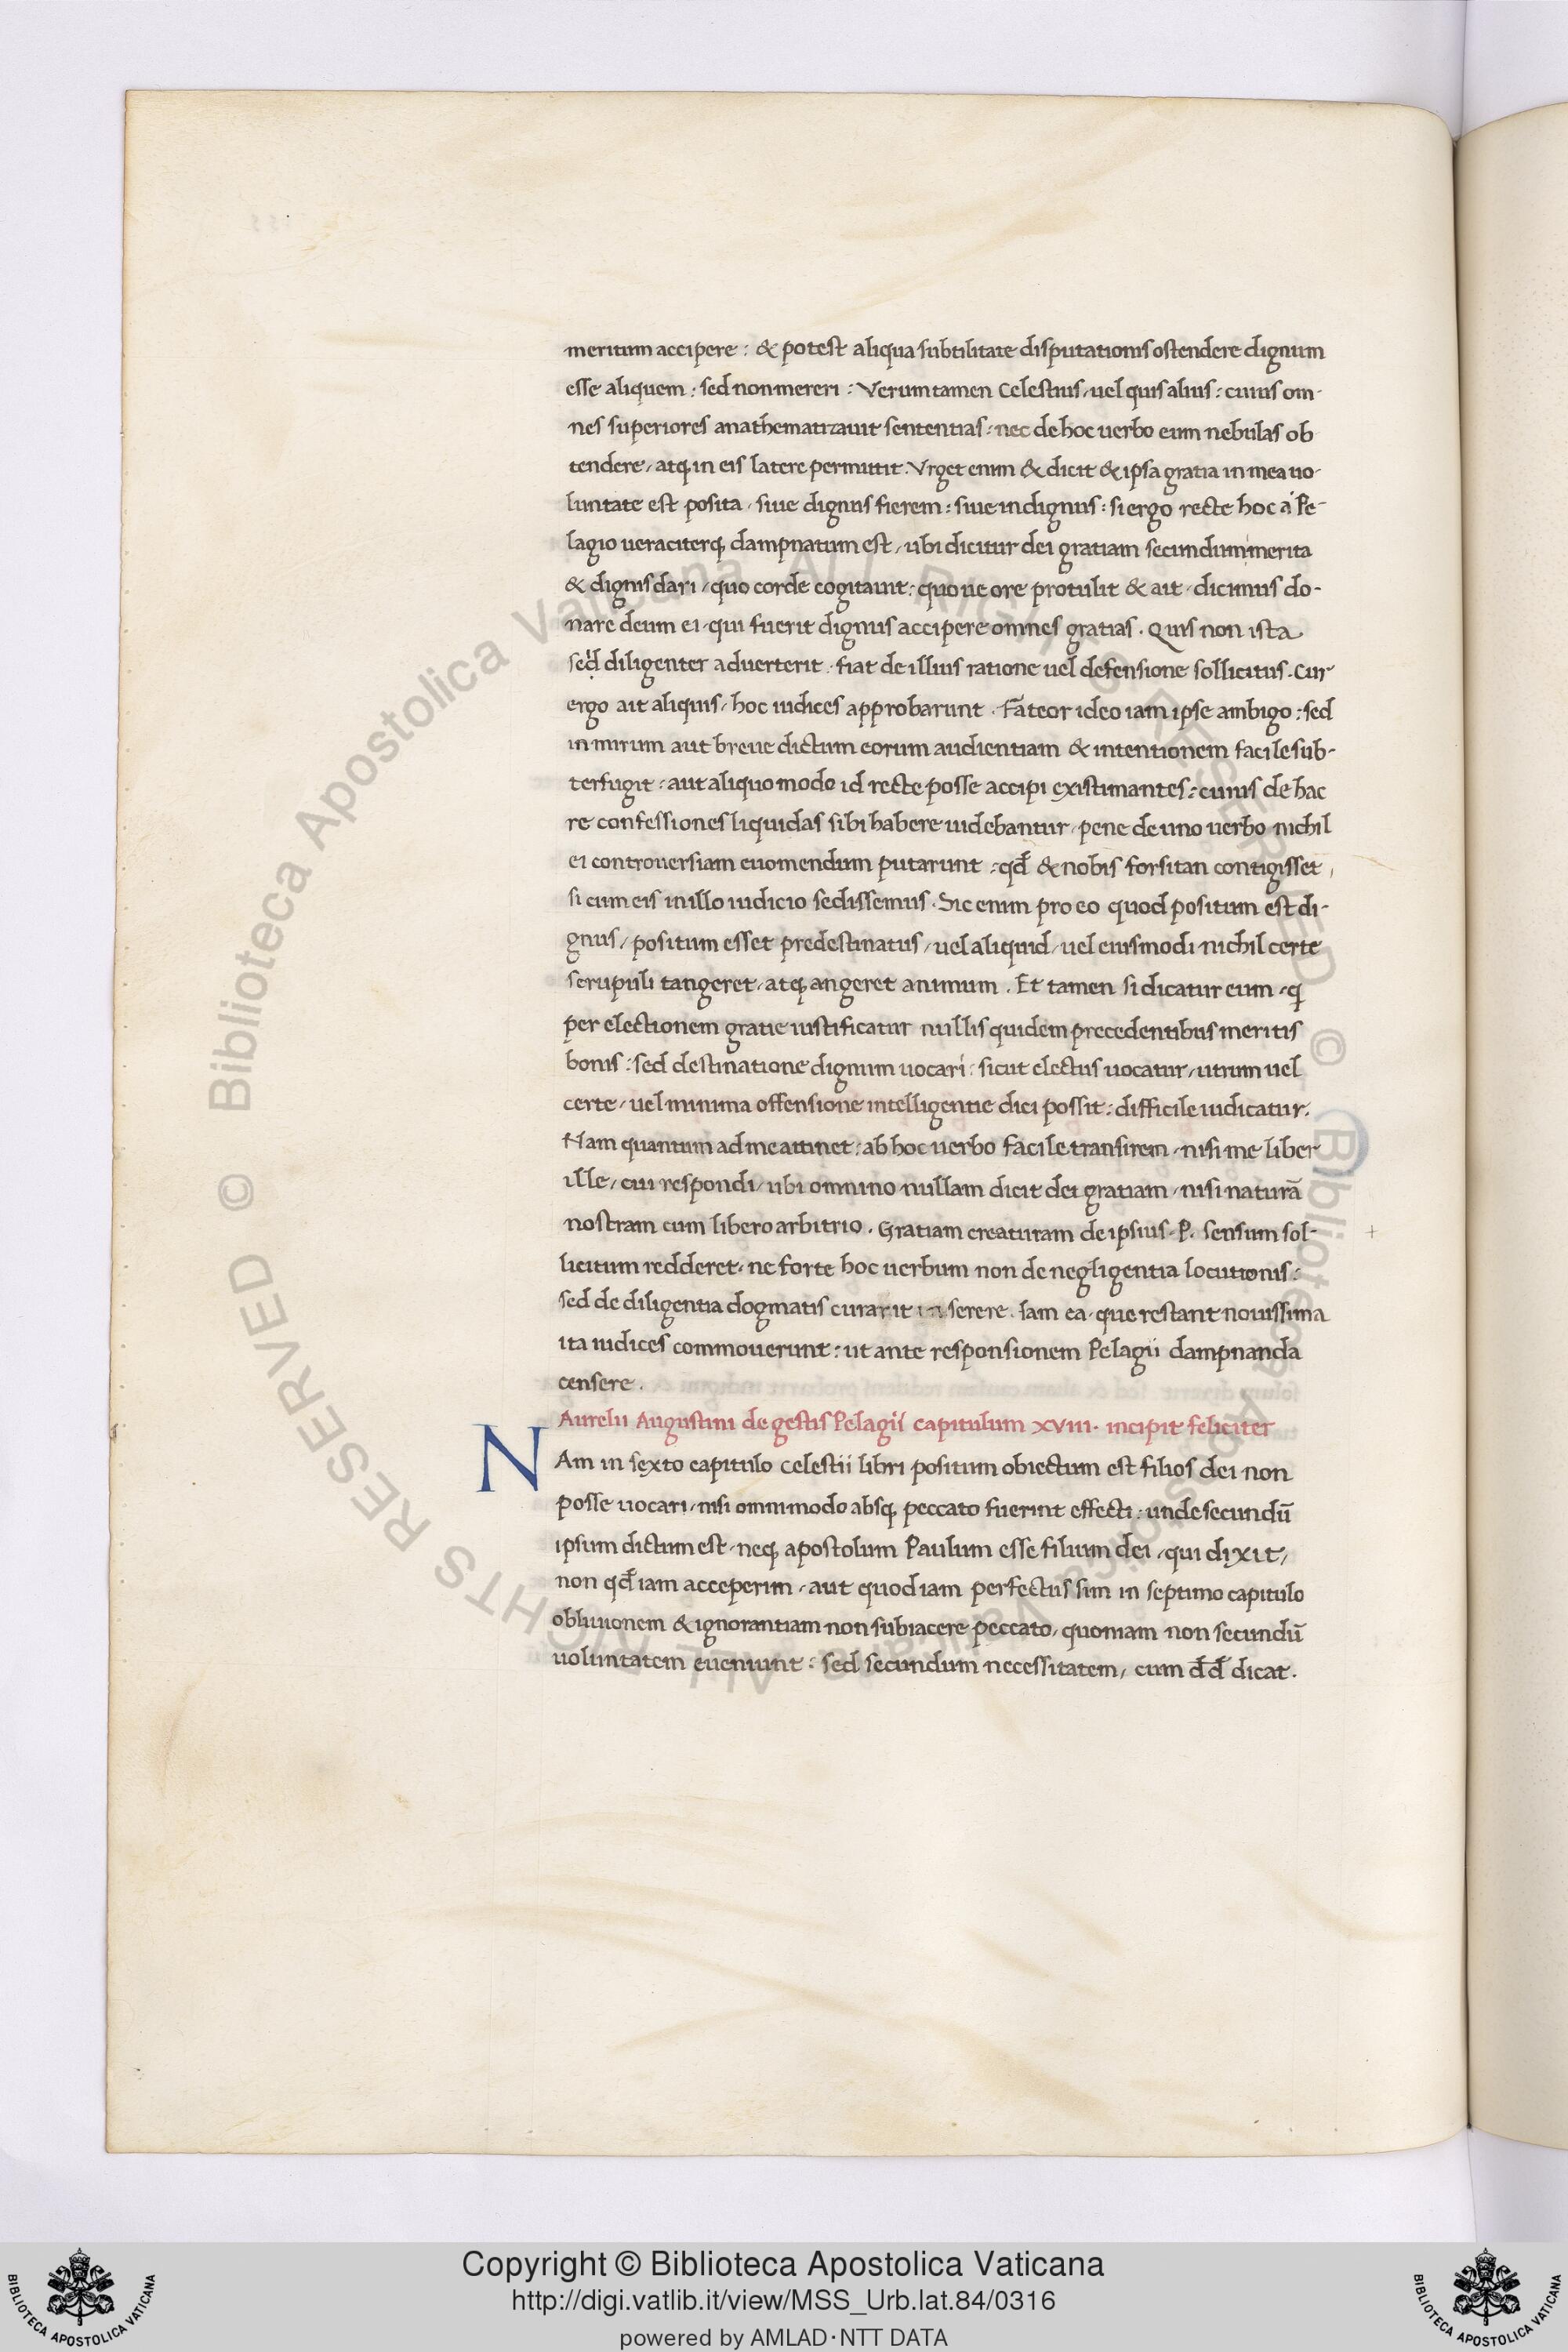 meritum accipere : & potest aliqua subtilitate disputationis ostendere dignum
esse aliquem : sed non mereri : Verumtamen Celestius, uel quis alius : cuius om-
nes superiores anathematizauit sententias : nec de hoc uerbo eum nebulas ob
tendere, atq; in eis latere permittit. Vrget enim & dicit & ipsa gratia in mea uo-
luntate est posita, siue dignus fierem : siue indignus : si ergo recte hoc a Pe-
lagio ueraciterq; dampnatum est, ubi dicitur dei gratiam secundum merita
& dignis dari, quo corde cogitauit : quo ue ore protulit & ait, dicimus do-
nare deum ei, qui fuerit dignus accipere omnes gratias. Quis non ista
sed diligenter aduerterit, fiat de illius ratione uel defensione sollicitus. Cur
ergo ait aliquis, hoc iudices approbarunt. Fateor ideo iam ipse ambigo : sed
in mirum aut breue dictum eorum audientiam & intentionem facile sub-
terfugit : aut aliquo modo id recte posse accipi existimantes : cuius de hac
re confessiones liquidas sibi habere uidebantur, pene de uno uerbo nichil
ei controuersiam euomendum putarunt : qđ & nobis forsitan contigisset,
si cum eis in illo iudicio sedissemus. Sic enim pro eo quod positum est di-
gnus, positum esset predestinatus, uel aliquid, uel eiusmodi nichil certe
scrupuli tangeret, atq; angeret animum. Et tamen si dicatur eum, q
per electionem gratie iustificatur nullis quidem precedentibus meritis
bonis : sed destinatione dignum uocari : sicut electus uocatur, utrum uel
certe, uel minima offensione intelligentie dici possit : difficile iudicatur.
Nam quantum ad me attinet : ab hoc uerbo facile transirem, nisi me liber
ille, cui respondi, ubi omnino nullam dicit dei gratiam, nisi naturā
nostram cum libero arbitrio. Gratiam creaturam de ipsius. P. sensum sol-
licitum redderet, ne forte hoc uerbum non de negligentia locutionis :
sed de diligentia dogmatis curarit inserere. Iam ea, que restant nouissima
ita iudices commouerunt : ut ante responsionem Pelagii dampnanda
censere.
Aurelii Augustini de gestis Pelagii capitulum XVIII. incipit feliciter
NAm in sexto capitulo celestii libri positum obiectum est filios dei non
posse uocari, nisi omnimodo absq; peccato fuerint effecti : unde secundū
ipsum dictum est, neq; apostolum Paulum esse filium dei, qui dixit,
non qđ iam acceperim, aut quod iam perfectus sim in septimo capitulo
obliuionem & ignorantiam non subiacere peccato, quoniam non secundū
uoluntatem eueniunt : sed secundum necessitatem, cum đđ dicat.
© Biblioteca Apostolica Vaticana ALL RIGHTS RESERVED © Biblioteca Apostolica Vaticana ALL RIGHTS RESERVED
Copyright © Biblioteca Apostolica Vaticana
http://digi.vatlib.it/view/MSS_Urb.lat.84/0316
powered by AMLAD·NTT DATA
BIBLIOTECA APOSTOLICA VATICANA
BIBLIOTECA APOSTOLICA VATICANA